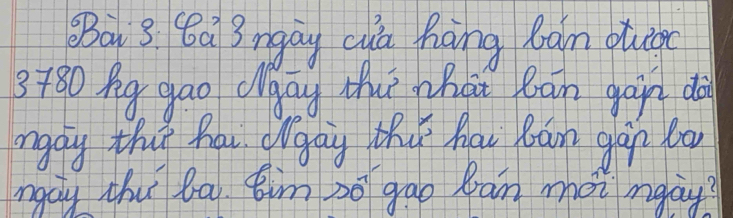 Bài 3. Cả 3 ngày cửa hàng bán được
3780 kg gạo Ngày thứ nhất bán gấp đôi
ngày thứ hai. Ngày thứ hai bán gấp ba
ngày thứ ba. Tìm số gạo bán mỗi ngày?